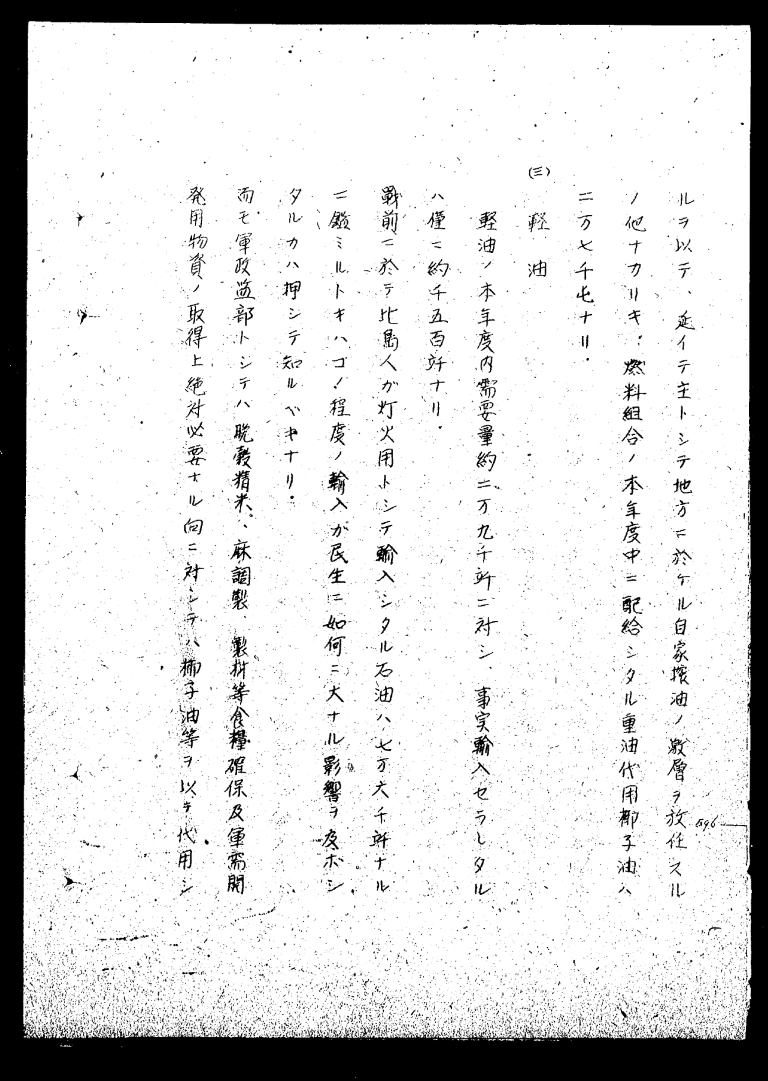 ルヲ以テ、延イテ主トシテ地方ニ於ケル自家搾油ノ数層ヲ放任スル
ノ他ナカリキ。燃料組合ノ本年度中ニ配給シタル重油代用椰子油ハ
二万七千屯ナリ。
(三) 軽油
軽油ノ本年度内需要量約二万九千竏ニ対シ、事実輸入セラレタル
ハ僅ニ約千五百竏ナリ。
戦前ニ於テ比島人ガ灯火用トシテ輸入シタル石油ハ、七万六千竏ナル
ニ鑑ミルトキハコノ程度ノ輸入が民生ニ如何ニ大ナル影響ヲ及ボシ
タルカハ押シテ知ルベキナリ。
而モ軍政監部トシテハ脱穀精米、麻調製、製材等食糧確保及軍需開
発用物資ノ取得上絶対必要ナル向ニ対シテハ椰子油等ヲ以テ代用シ
596